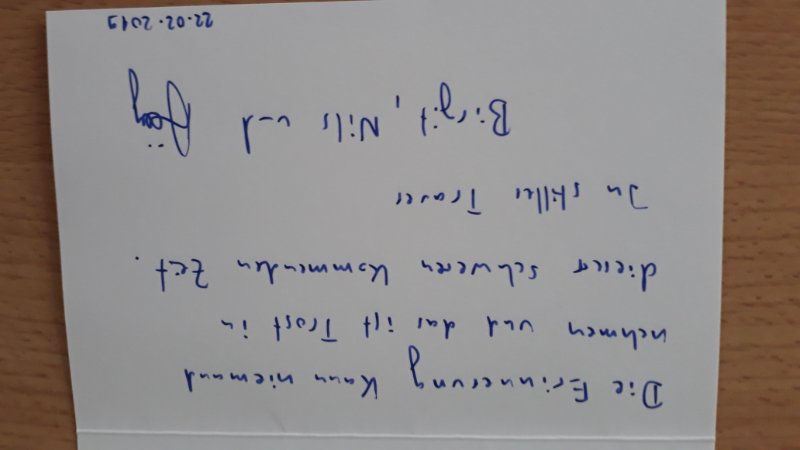 Die Erinnerung kann niemand
nehmen und das ist Trost in
dieser schweren kommenden Zeit.
In stiller Trauer
Birgit, Nils und Jörg
22.02.2019